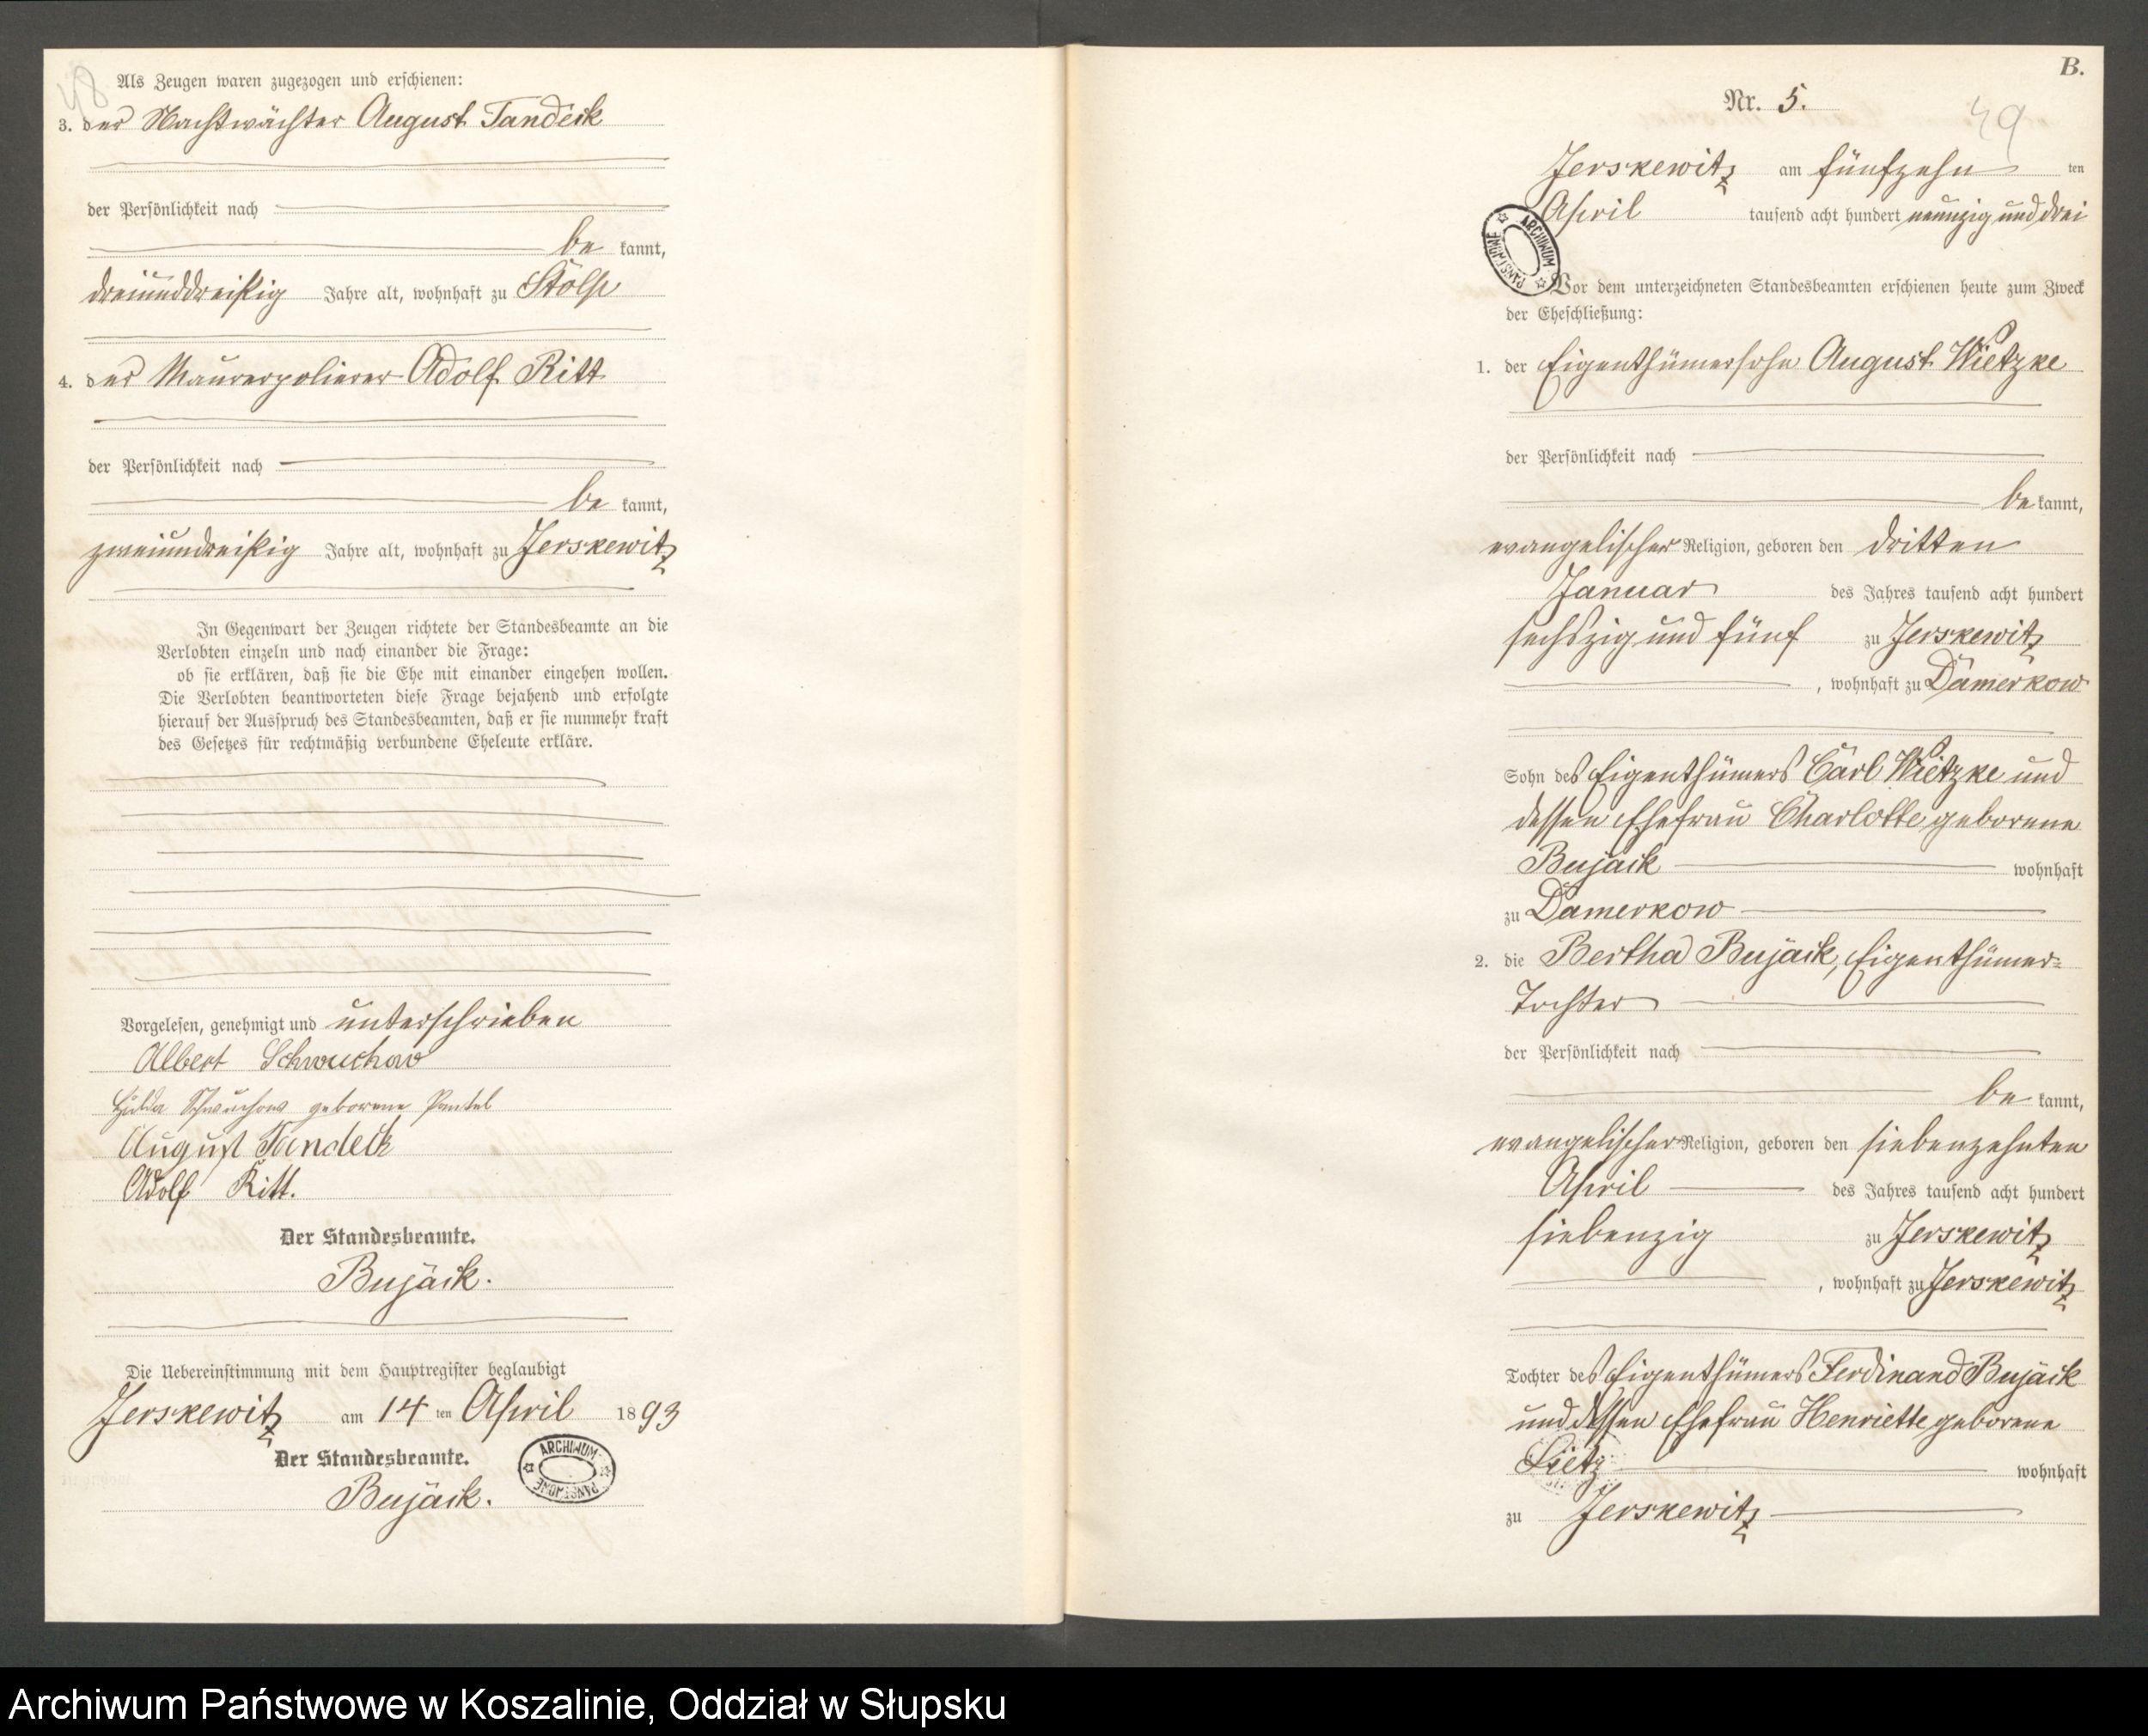 48
Als Zeugen waren zugezogen und erschienen:
3. der Nachtwächter August Tandeck
der Persönlichkeit nach
be kannt,
dreiunddreißig Jahre alt, wohnhaft zu Stolp
4. der Maurerpolierer Adolf Ritt
der Persönlichkeit nach
be kannt,
zweiundreißig Jahre alt, wohnhaft zu Jerskewitz
In Gegenwart der Zeugen richtete der Standesbeamte an die
Verlobten einzeln und nach einander die Frage:
ob sie erklären, daß sie die Ehe mit einander eingehen wollen.
Die Verlobten beantworteten diese Frage bejahend und erfolgte
hierauf der Ausspruch des Standesbeamten, daß er sie nunmehr kraft
des Gesetzes für rechtmäßig verbundene Eheleute erkläre.
Vorgelesen, genehmigt und unterschrieben
Albert Schwuchow
Hulda Schwuchow geborene Pantel
August Tandeck
Adolf Ritt.
Der Standesbeamte.
Bujack.
Die Uebereinstimmung mit dem Hauptregister beglaubigt
Jerskewitz am 14 ten April 1893
Der Standesbeamte.
Bujack.
ARCHIWUM PAŃSTWOWE
B.
Nr. 5.
49
Jerskewitz am fünfzehn ten
April tausend acht hundert neunzig und drei
ARCHIWUM PAŃSTWOWE
Vor dem unterzeichneten Standesbeamten erschienen heute zum Zweck
der Eheschließung:
1. der Eigenthümersohn August Wietzke
der Persönlichkeit nach
be kannt,
evangelischer Religion, geboren den dritten
Januar des Jahres tausend acht hundert
sechszig und fünf zu Jerskewitz
, wohnhaft zu Damerkow
Sohn des Eigenthümers Carl Wietzke und
dessen Ehefrau Charlotte geborene
Bujack wohnhaft
zu Damerkow
2. die Bertha Bujack, Eigenthümer-
Tochter
der Persönlichkeit nach
be kannt,
evangelischer Religion, geboren den siebenzehnten
April des Jahres tausend acht hundert
siebenzig zu Jerskewitz
, wohnhaft zu Jerskewitz
Tochter des Eigenthümers Ferdinand Bujack
und dessen Ehefrau Henriette geborene
Lietz wohnhaft
zu Jerskewitz
Archiwum Państwowe w Koszalinie, Oddział w Słupsku